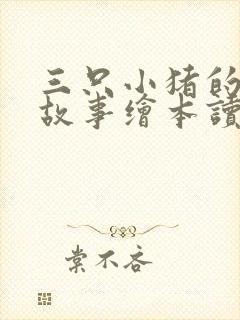 三只小猪的
故事繪本讀
棠不吝